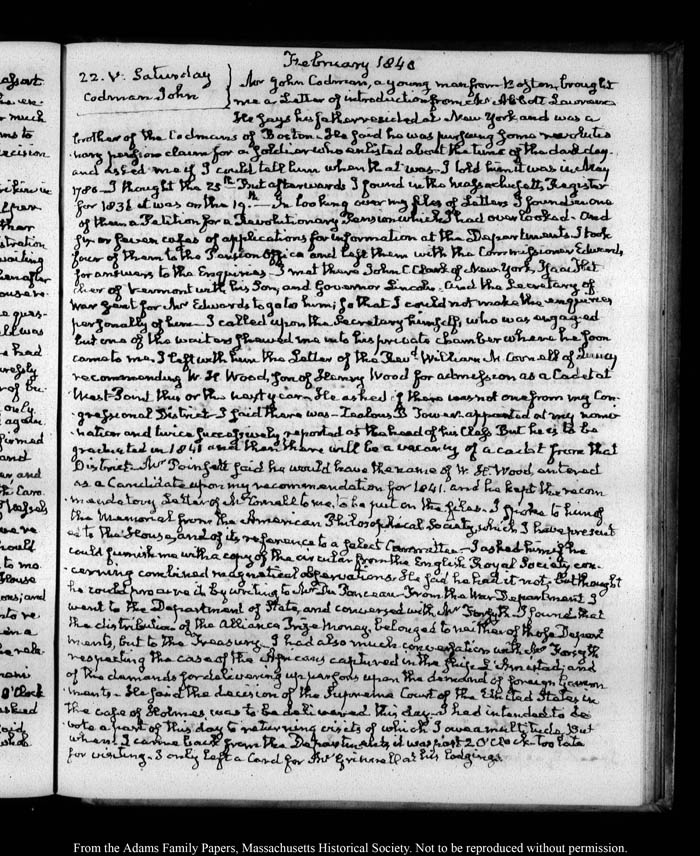 February 1840
22. V. Saturday
Codman John
Mr John Codman, a young man from Boston, brought
me a Letter of introduction from Mr Abbott Lawrence
He says his father resided at New York and was a
brother of the Codmans of Boston. He said he was pursuing some revolutio
nary pension claim for a soldier who enlisted about the time of the dark day.
and asked me if I could tell him when that was. I told him it was in May
1780 - I thought the 25th But afterwards I found in the Massachusetts Register
for 1831 it was on the 19th. In looking over my files of Letters I found in one
of them a Petition for a Revolutionary Pension which I had overlooked. And
six or seven cases of applications for information at the Departments I took
four of them to the Pension Office and left them with the Commissioner Edwards,
for answers to the Enquiries. I met there John C Clark of New York, Isaac Flet
cher of Vermont with his Son, and Governor Lincoln. and the Secretary of
War sent for Mr Edwards to go to him; so that I could not make the enquiries
personally of him. I called upon the Secretary himself, who was engaged
but one of the waiters shewed me into his private chamber where he soon
came to me. I left with him the Letter of the Revd William M Cornell of Quincy
recommending W H Wood, son of Henry Wood for admission as a Cadet at
West Point this or the next year. He asked if there was not one from my Con
gressional District. I said there was - Zealous B Tower appointed at my nomi
nation and twice successively reported at the head of his Class But he is to be
graduated in 1841 and then there will be a vacancy of a cadet from that
District. Mr Poinsett said he would have the name of W. H Wood, entered
as a Candidate upon my recommendation for 1841. and he kept the recom
mendatory Letter of Mr Cornell to me, to be put on the files. I spoke to him of
the Memorial from the American Philosophical Society, which I have present
ed to the House, and of its reference to a select Committee - I asked him if he
could furnish me with a copy of the circular from the English Royal Society con
cerning combined magnetical observations. He said he had it not; but thought
he could procure it by writing to Mr Du Ponceau. From the War Department I
went to the Department of State, and conversed with Mr Forsyth I found that
the distribution of the Alliance Prize Money, belonged to neither of those Depart
ments, but to the Treasury. I had also much conversation with Mr Forsyth
respecting the case of the Africans captured in the Ship L'Amistad; and
of the demands for delivering up persons upon the demand of foreign Govern
ments. He said the decision of the Supreme Court of the United States in
the case of Holmes was to be delivered this day. I had intended to de
vote a part of this day to returning visits of which I owe a multitude. But
when I came back from the Departments it was past 2 O'Clock too late
for visiting. I only left a Card for Mr Grinnell at his lodgings
O'Clock
From the Adams Family Papers, Massachusetts Historical Society. Not to be reproduced without permission.